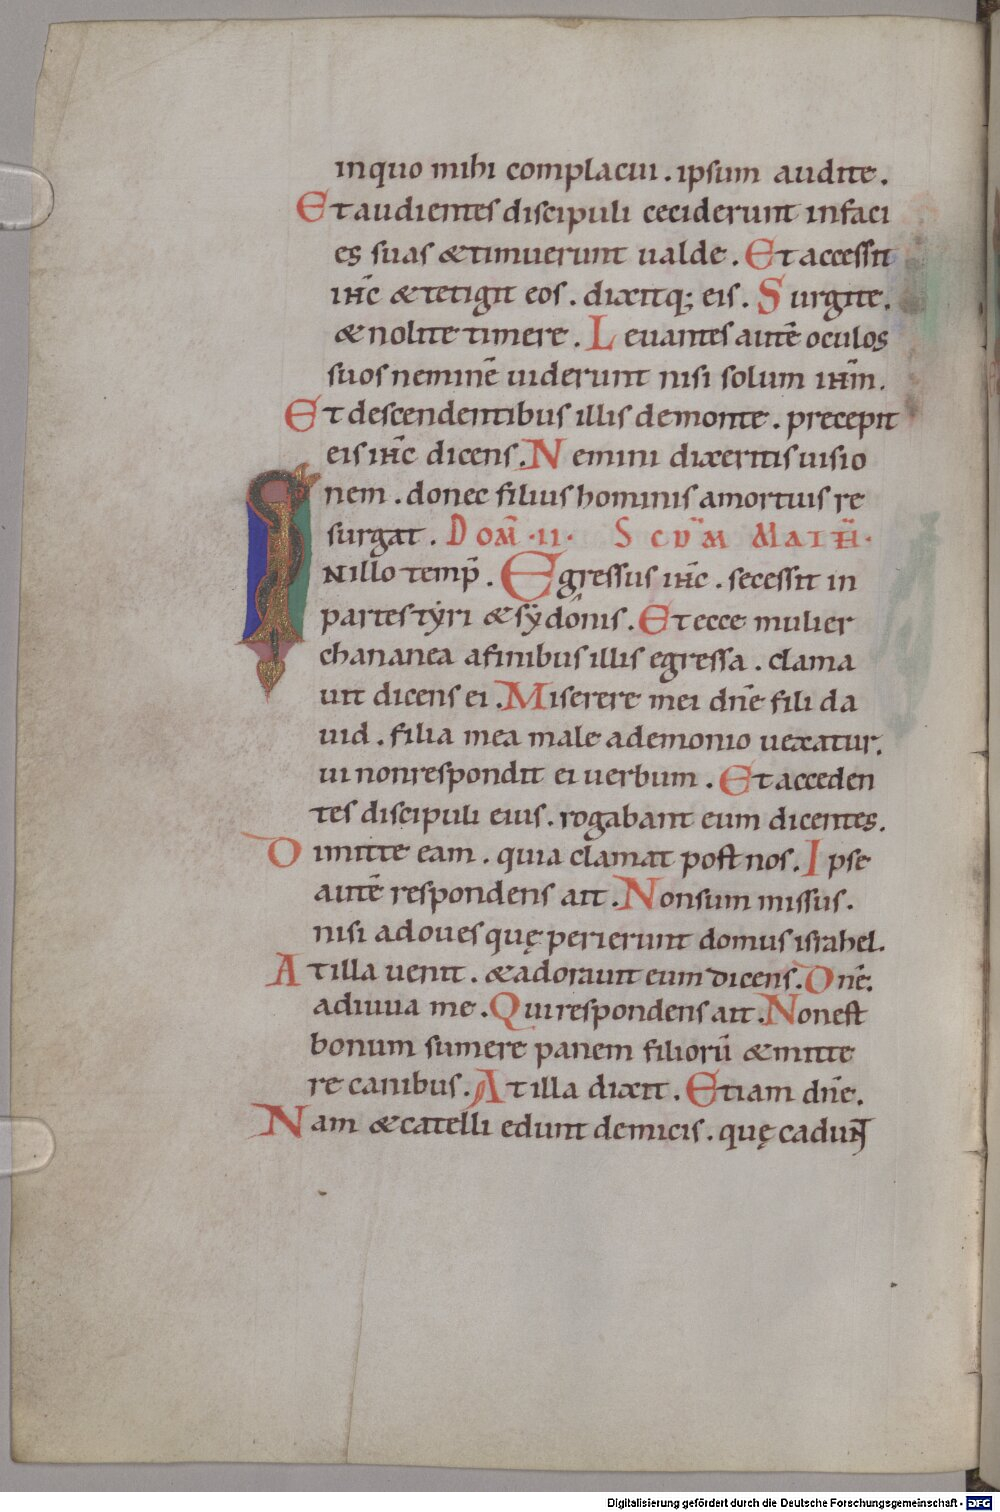 inquo mihi complacui. ipsum audite.
Et audientes discipuli ceciderunt infaci
es suas &timuerunt ualde. Et accessit
ihc̄ &tetigit eos. dixitq; eis. Surgite.
&nolite timere. Leuantes autē oculos
suos neminē uiderunt nisi solum ihm̄.
Et descendentibus illis demonte. precepit
eis ihc̄ dicens. Nemini dixeritis uisio
nem. donec filius hominis amortuis re
surgat. DOM̄ .II. SCDM MATH̄.
INillo temp̄. Egressus ihc̄. secessit in
partes tyri &sydonis. Et ecce mulier
chananea afinibus illis egressa. clama
uit dicens ei. Miserere mei dn̄e fili da
uid. filia mea male ademonio uexatur.
ui nonrespondit ei uerbum. Et acceden
tes discipuli eius. rogabant eum dicentes.
Dimitte eam. quia clamat post nos. Ipse
autē respondens ait. Nonsum missus.
nisi adoues quę perierunt domus israhel.
At illa uenit. &adorauit eum dicens. Dn̄e.
adiuua me. Qui respondens ait. Nonest
bonum sumere panem filiorū &mitte
re canibus. At illa dixit. Etiam dn̄e.
Nam &catelli edunt demicis. quę cadunt
Digitalisierung gefördert durch die Deutsche Forschungsgemeinschaft - DFG